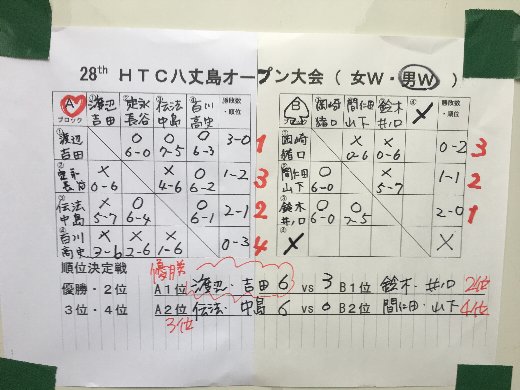 28th HTC八丈島オープン大会(女W・男W)
A ブロック ①渡辺 吉田 ②定永 長谷 ③伝法 中島 ④百川 高史 勝敗数・順位
①渡辺 吉田 ○ 6-0 ○ 7-5 ○ 6-3 3-0 1
②定永 長谷 × 0-6 × 4-6 ○ 6-2 1-2 3
③伝法 中島 × 5-7 ○ 6-4 ○ 6-1 2-1 2
④百川 高史 × 3-6 × 2-6 × 1-6 0-3 4
B ブロック ①岡崎 緒口 ②間仁田 山下 ③鈴木 井口 ④× 勝敗数・順位
①岡崎 緒口 × 0-6 × 0-6 0-2 3
②間仁田 山下 ○ 6-0 × 5-7 1-1 2
③鈴木 井口 ○ 6-0 ○ 7-5 2-0 1
④× ×
順位決定戦 優勝
優勝・2位 A1位 渡辺・吉田 6 vs 3 B1位 鈴木・井口 2位
3位・4位 A2位 伝法・中島 6 vs 0 B2位 間仁田・山下 4位
3位